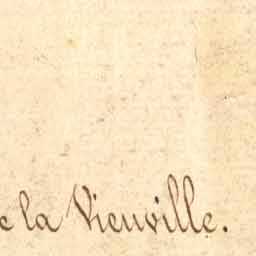 e la Vieuville.